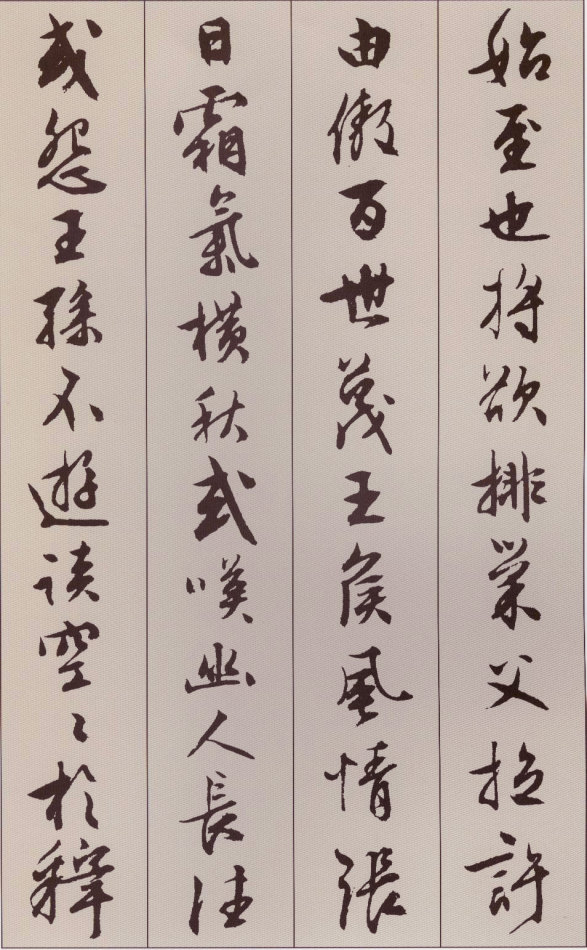 始至也將欲排巢父拉許
由傲百世蔑王侯風情張
日霜氣橫秋或嘆幽人長往
或怨王孫不遊談空々於釋